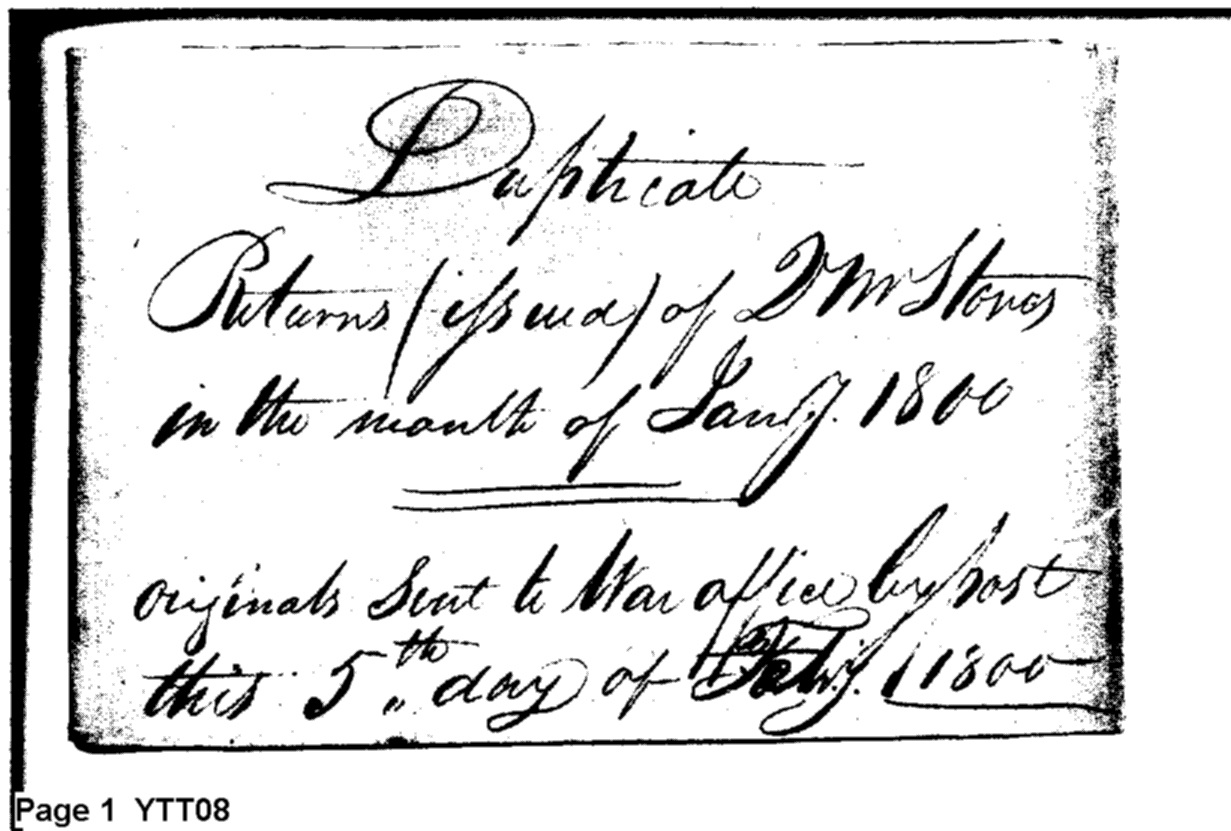 Duplicate
Returns (issued) of QMr Stores
in the month of Jany. 1800
originals Sent to War office by post
this 5th day of Feby. 1800
Page 1 YTT08